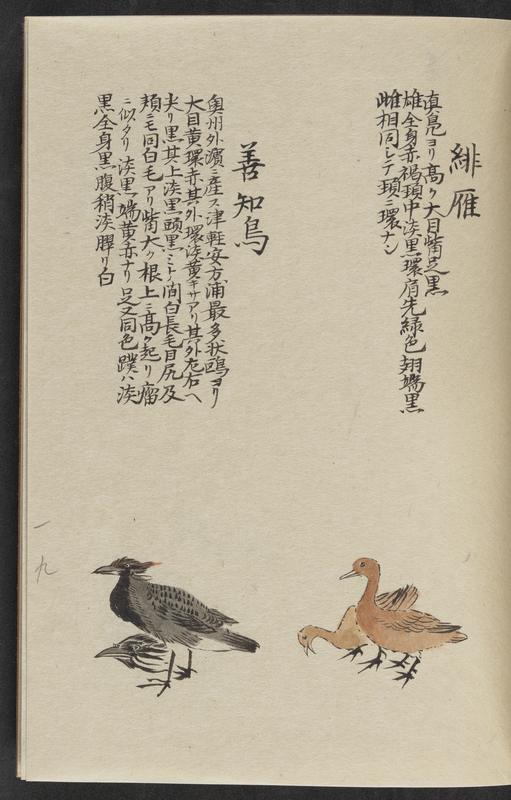 緋雁
真鳧ヨリ高ク大目觜足黒
雄全身赤褐頚中淡黒環肩先緑色翅端黒
雌相同シテ頚ニ環ナシ
善知鳥
奥州外濱ニ産ス津軽安方浦最多状鴎ヨリ
大目黄環赤其外環淡黄キサアリ其外左右ヘ
尖リ黒其上淡黒頭黒ミトノ間白長毛目尻及
頬ニモ同白毛アリ觜大ク根上ニ高ク起リ瘤
ニ似タリ淡黒端黄赤ナリ足又同色蹼ハ淡
黒全身黒腹稍淡臎リ白
一九